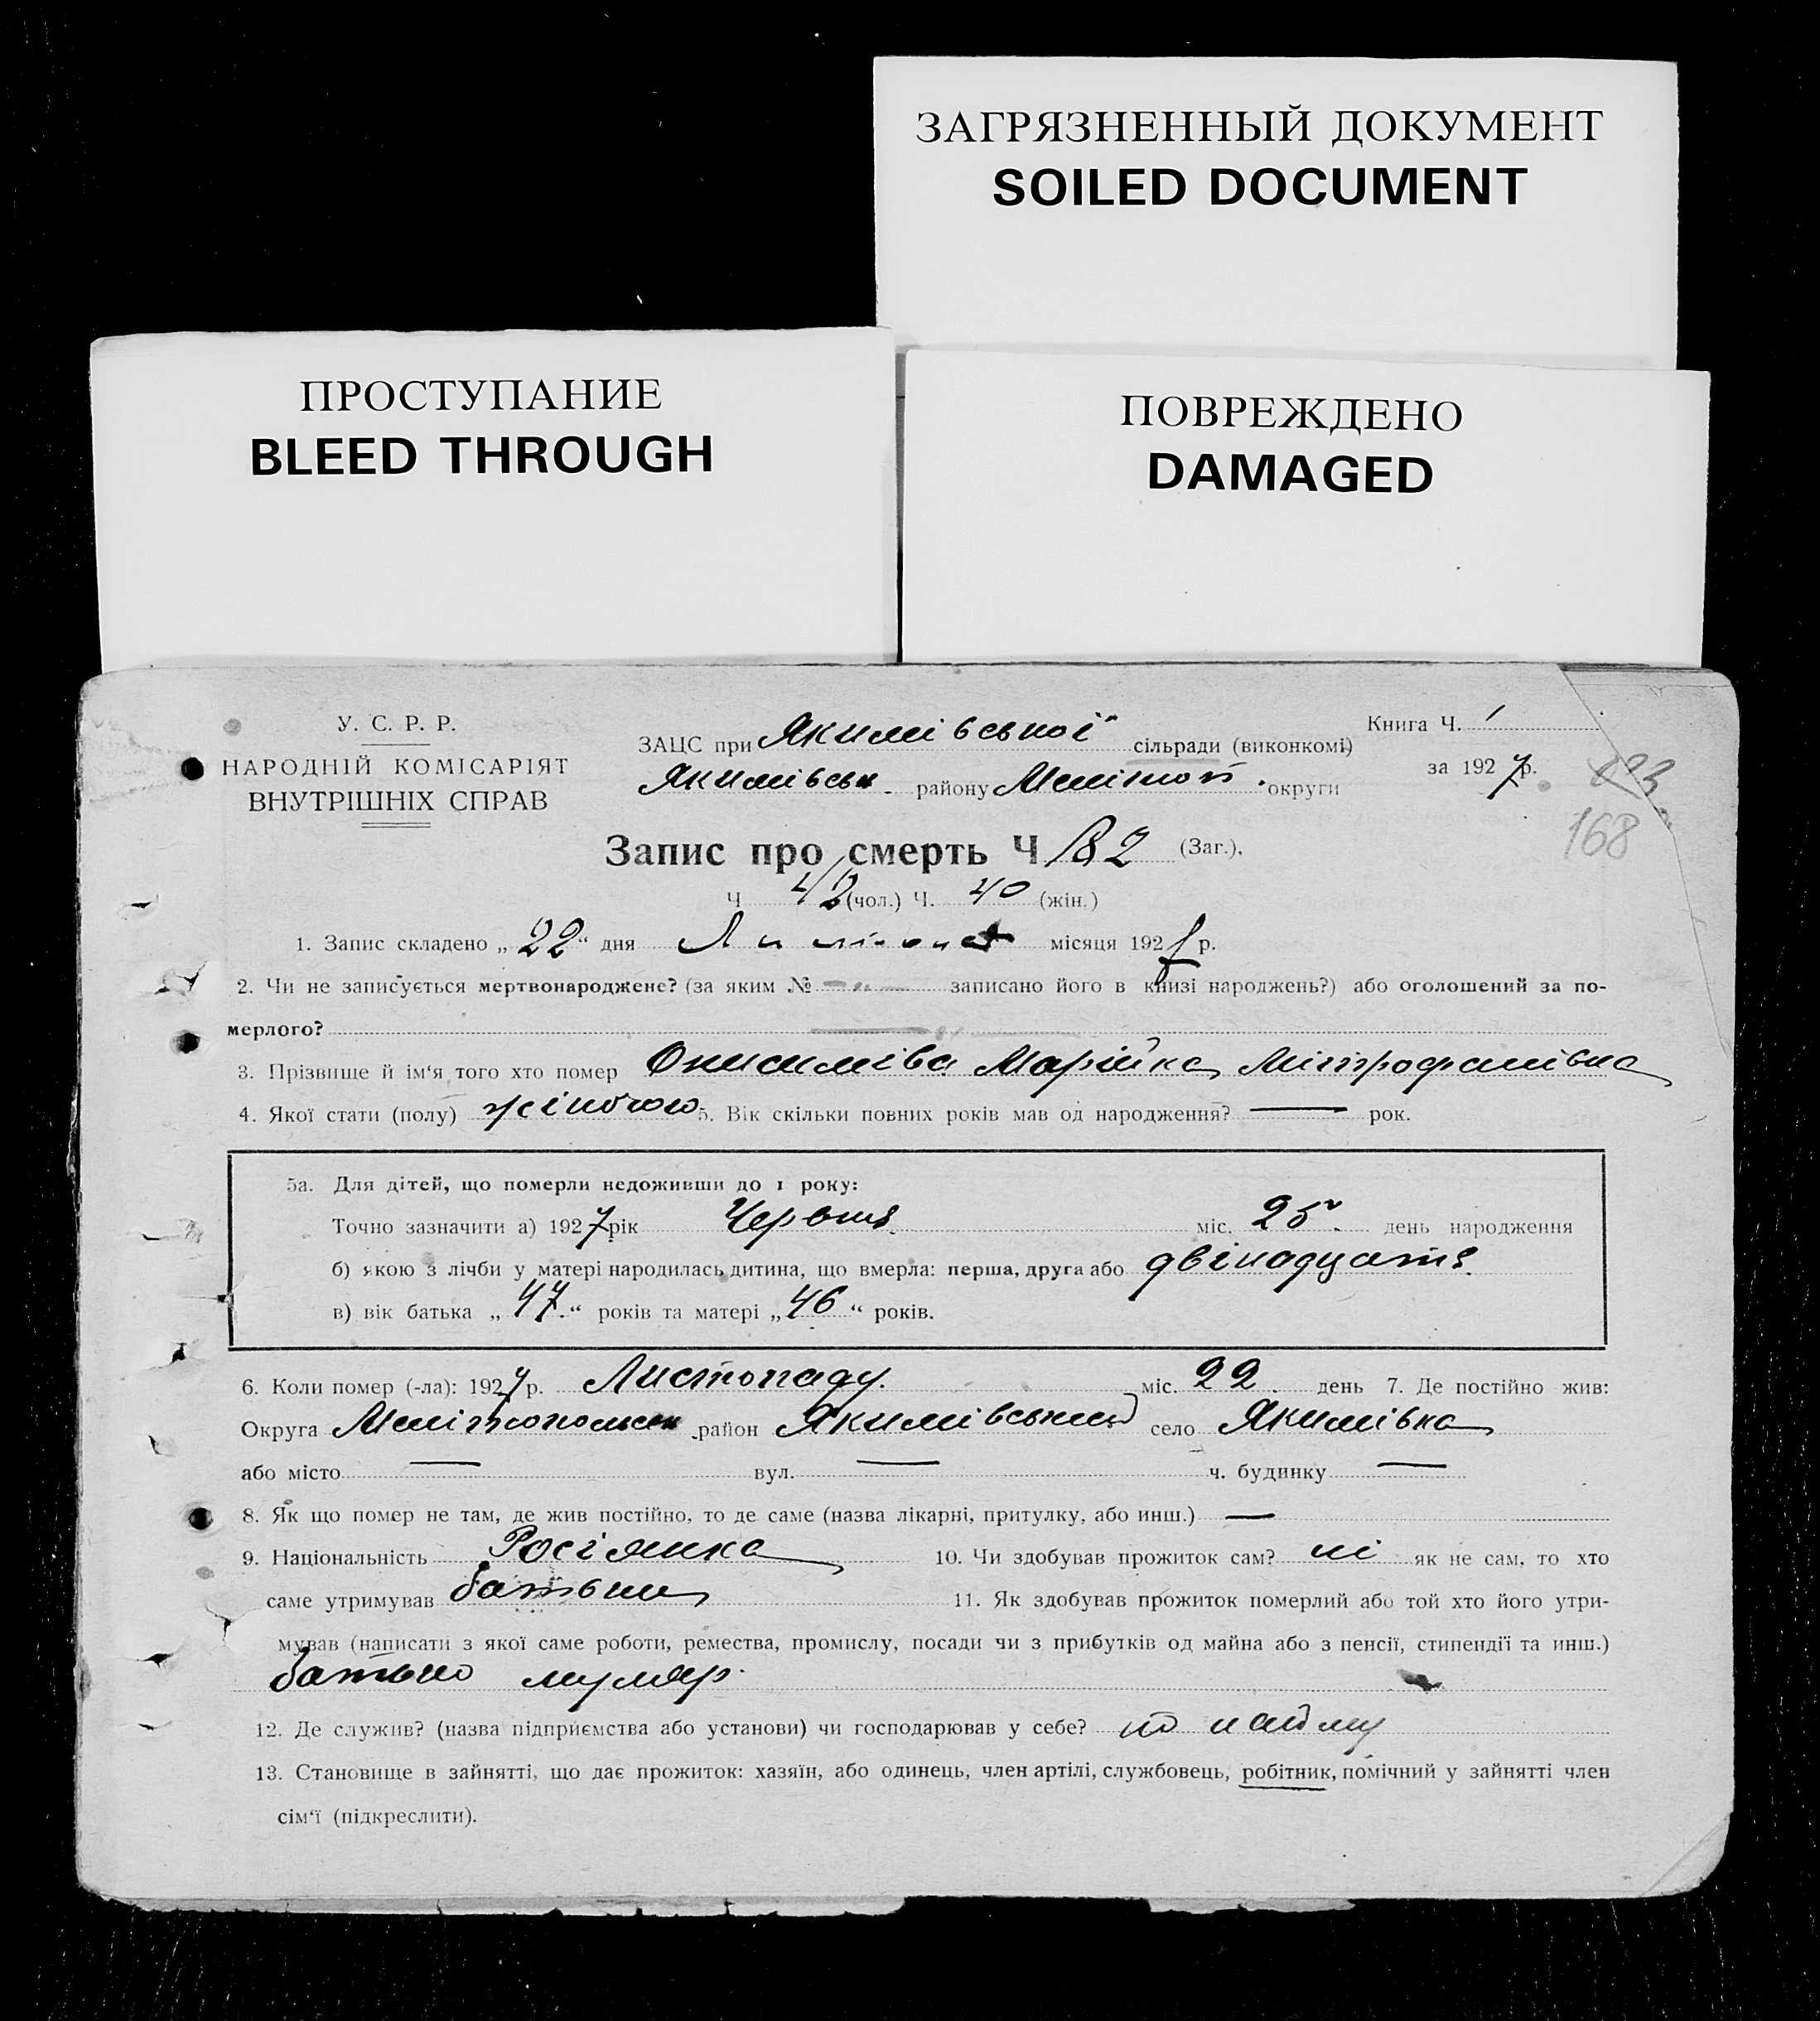 ЗАГРЯЗНЕННЫЙ ДОКУМЕНТ
SOILED DOCUMENT
ПРОСТУПАНИЕ
BLEED THROUGH
ПОВРЕЖДЕНО
DAMAGED
У. С. Р. Р.
НАРОДНІЙ КОМІСАРІЯТ
ВНУТРІШНІХ СПРАВ
ЗАЦС при Якимівської сільради (виконкомі)
Якимівськ. району Меліто . округи
Книга Ч. 1
за 1927 р.
168
Запис про смерть Ч 182 (Заг.),
Ч 42 (чол.) Ч. 40 (жін.)
1. Запис складено „22“ дня місяця 1927 р.
2. Чи не записується мертвонароджене? (за яким № — записано його в книзі народжень?) або оголошений за по-
мерлого? —
3. Прізвище й ім'я того хто помер Онисимів Марійка Мітрофанівна
4. Якої стати (полу) жіночого 5. Вік скільки повних років мав од народження? — рок.
5а. Для дітей, що померли недоживши до 1 року:
Точно зазначити а) 1927 рік Червня міс. 25 день народження
б) якою з лічби у матері народилась дитина, що вмерла: перша, друга або двінадцята
в) вік батька „47“ років та матері „46“ років.
6. Коли помер (-ла): 1927 р. Листопаду міс. 22 день 7. Де постійно жив:
Округа Мелітопольськ район Якимівський село Якимівка
або місто — вул. — ч. будинку —
8. Як що помер не там, де жив постійно, то де саме (назва лікарні, притулку, або инш.) —
9. Національність Росіянка 10. Чи здобував прожиток сам? ні як не сам, то хто
саме утримував батьки 11. Як здобував прожиток померлий або той хто його утри-
мував (написати з якої саме роботи, ремества, промислу, посади чи з прибутків од майна або з пенсії, стипендії та инш.)
батько муляр.
12. Де служив? (назва підприємства або установи) чи господарював у себе? по найму
13. Становище в зайнятті, що дає прожиток: хазяїн, або одинець, член артілі, службовець, робітник, помічний у зайнятті член
сім'ї (підкреслити).